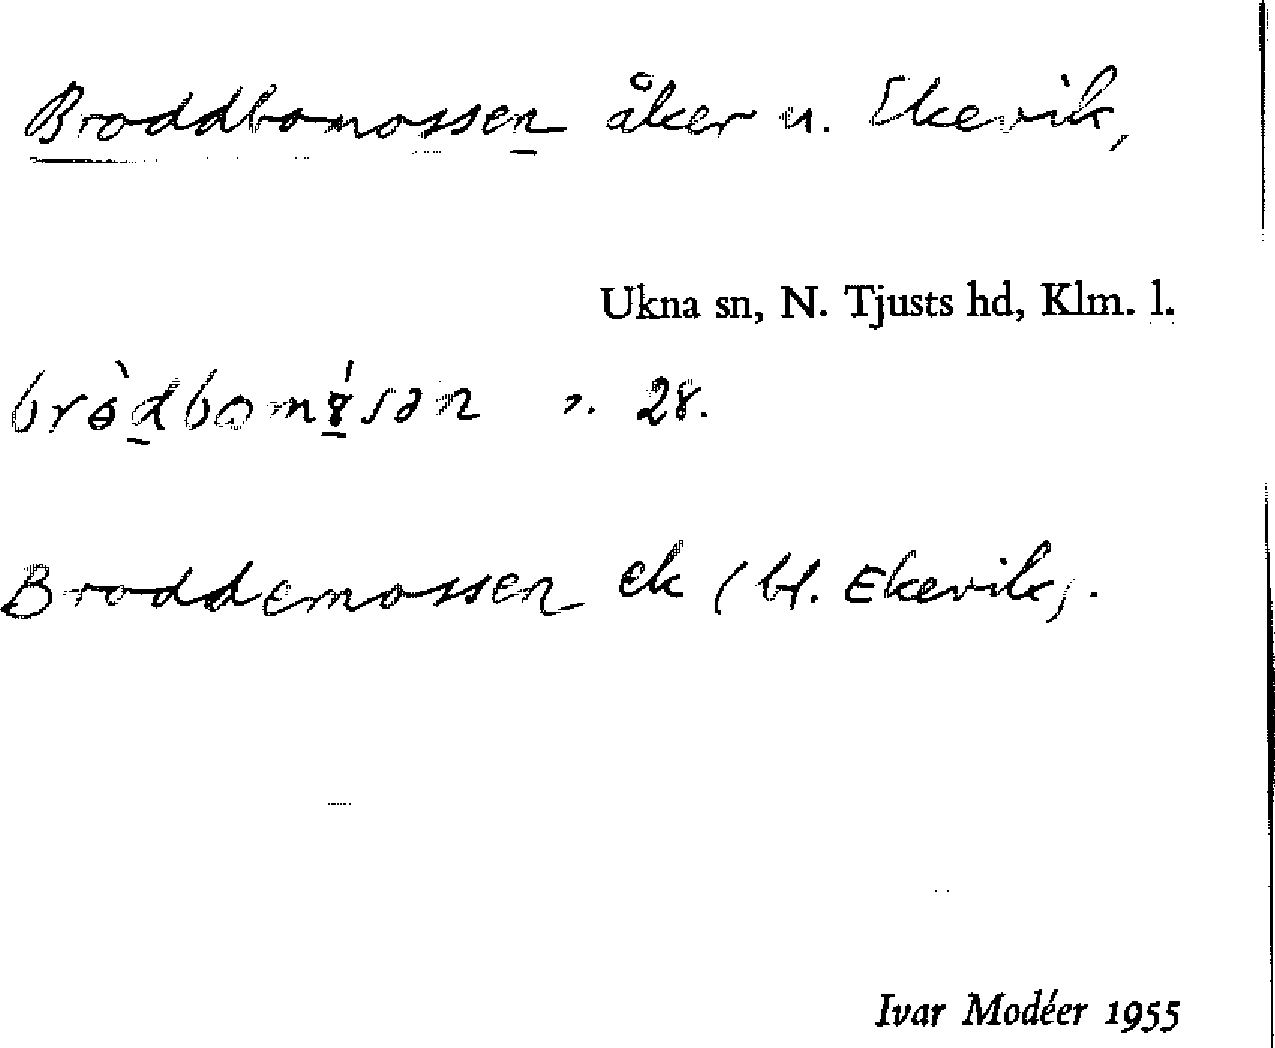 Broddbomossen åker u. Ekevik,
Ukna sn, N. Tjusts hd, Klm. l.
28.
Broddemossen ek (bl. Ekevik).
Ivar Modéer 1955